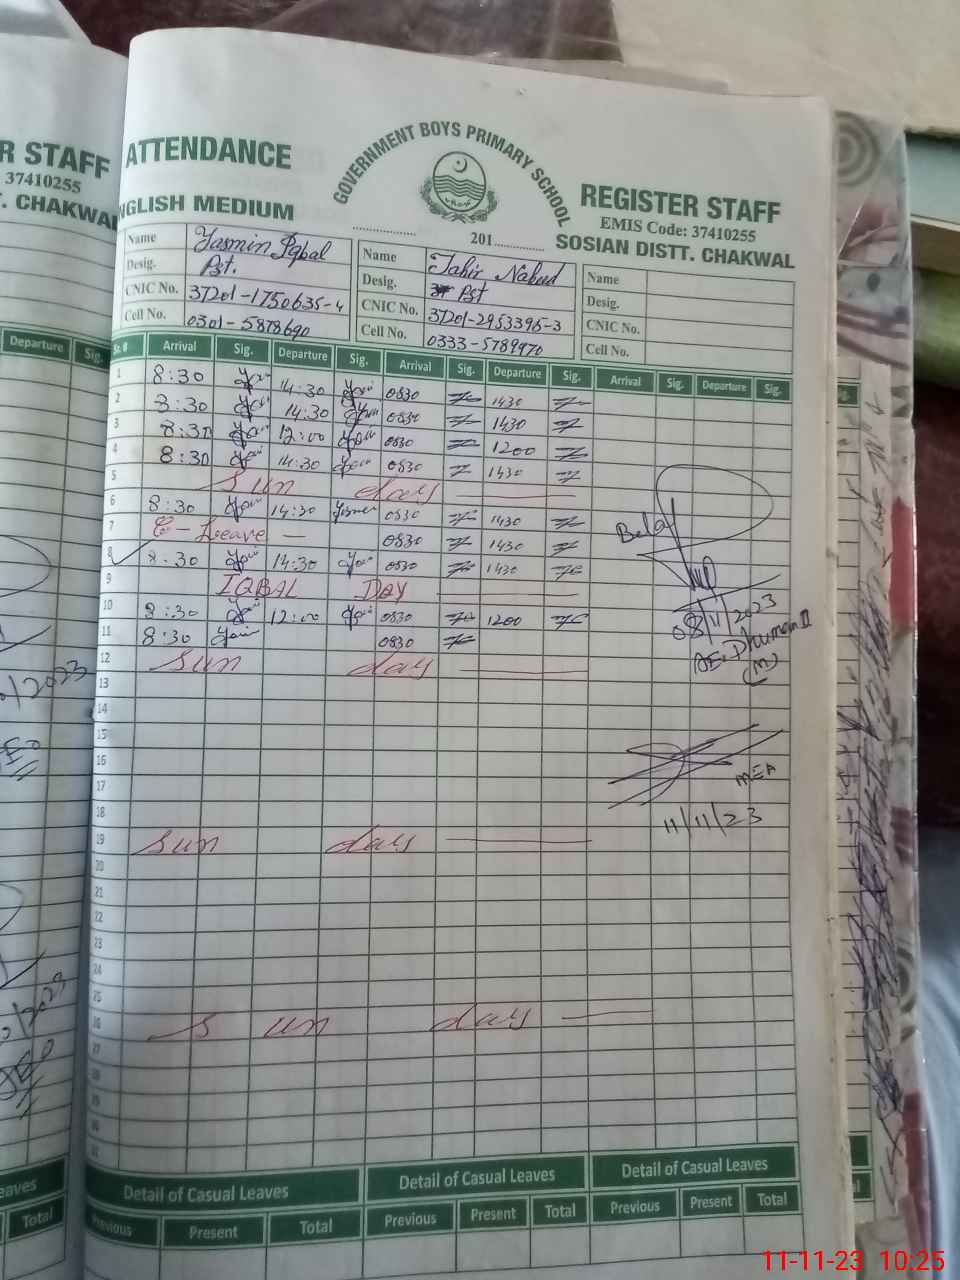 R STAFF
37410255
T. CHAKWAL
Departure Sig.
ATTENDANCE
GOVERNMENT BOYS PRIMARY SCHOOL
REGISTER STAFF
EMIS Code: 37410255
NGLISH MEDIUM
201
SOSIAN DISTT. CHAKWAL
Name Yasmin Iqbal
Desig. Pst.
CNIC No. 37201-1750635-4
Cell No. 0301-5878690
Name Tahir
Desig. Pst
CNIC No. 37201-2953395-3
Cell No. 0333-5789970
Name
Desig.
CNIC No.
Cell No.
Sr. # Arrival Sig. Departure Sig. Arrival Sig. Departure Sig. Arrival Sig. Departure Sig.
1 8:30 14:30 0830 1430
2 8:30 14:30 0830 1430
3 8:30 12:00 0830 1200
4 8:30 14:30 0830 1430
5 Sun day
6 8:30 14:30 0830 1430
7 C-Leave - 0830 1430
8 8:30 14:30 0830 1430
9 IQBAL DAY
10 8:30 12:00 0830 1200
11 8:30 0830
12 Sun day
13
14
15
16
17
18
19 Sun day
20
21
22
23
24
25
26 Sun day
27
28
29
30
31
08/11/2023
(M)
MEA
11/11/23
Detail of Casual Leaves Detail of Casual Leaves Detail of Casual Leaves
Previous Present Total Previous Present Total Previous Present Total
eaves
Total
11-11-23 10:25